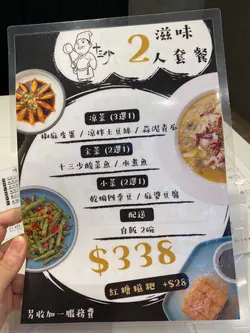 十三少
滋味
2人套餐
凉菜 (3選1)
椒麻皮蛋 / 涼拌土豆絲 / 蒜泥青瓜
主菜 (2選1)
十三少酸菜魚 / 水煮魚
小菜 (2選1)
乾煸四季豆 / 麻婆豆腐
配送
白飯2碗
$338
紅糖糍粑 +$28
另收加一服務費